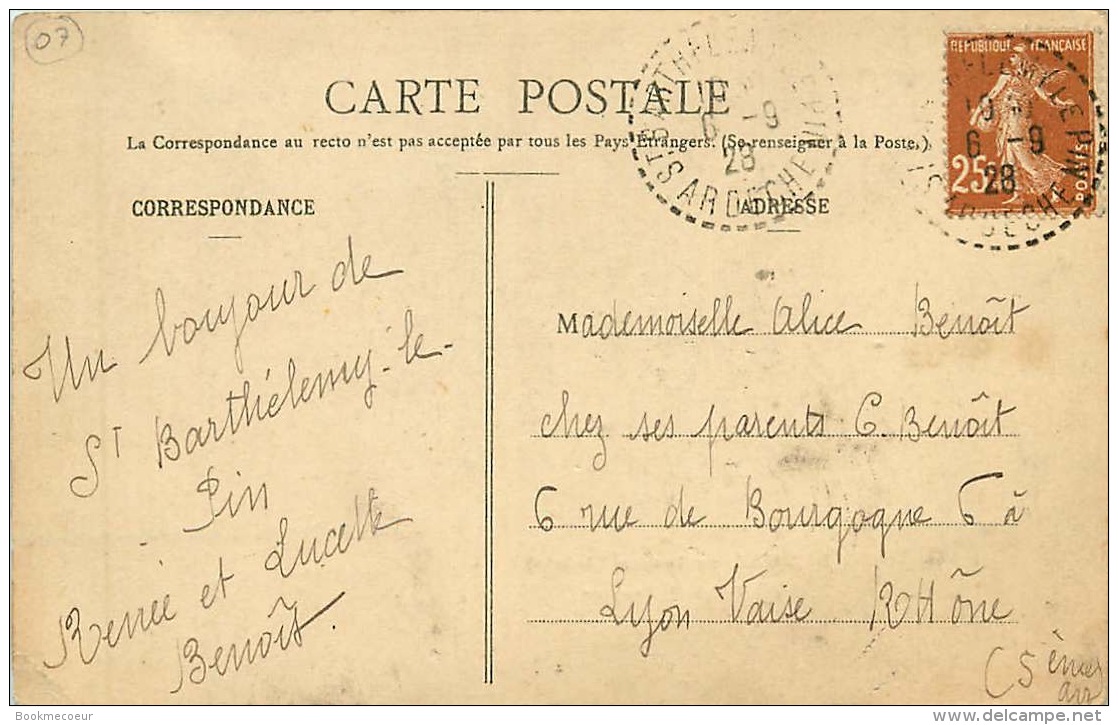 07
CARTE POSTALE
La Correspondance au recto n'est pas acceptée par tous les Pays Etrangers. (Se renseigner à la Poste.)
CORRESPONDANCE
ADRESSE
ARDECHE
6 -9
28
REPUBLIQUE FRANÇAISE
25
6 -9
28
LE PIN
Un bonjour de
St Barthélemy-le-
Pin
Renée et Lucette
Benoît.
Mademoiselle Alice Benoît
chez ses parents C. Benoît
6 rue de Bourgogne 6 à
Lyon Vaise RHône
(5 ème
arr
Bookmecoeur
www.delcampe.net